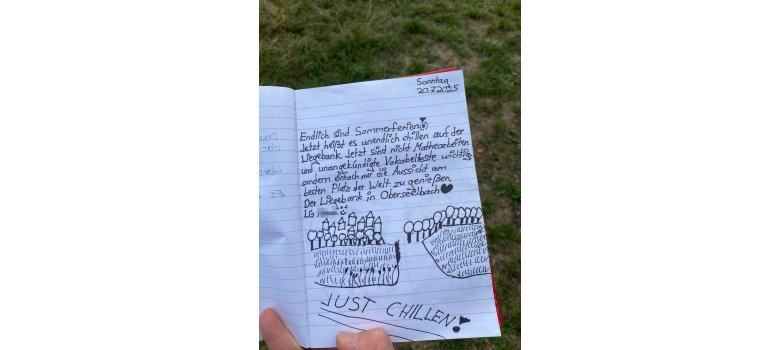 Sonntag
20.7.2025
Endlich sind Sommerferien!
Jetzt heißt es unendlich chillen auf der
Liegebank. Jetzt sind nicht Mathearbeiten
und unangekündigte Vokabelteste wichtig,
sondern einfach nur die Aussicht am
besten Platz der Welt zu genießen.
Der Liegebank in Oberseelbach
LG
JUST CHILLEN!